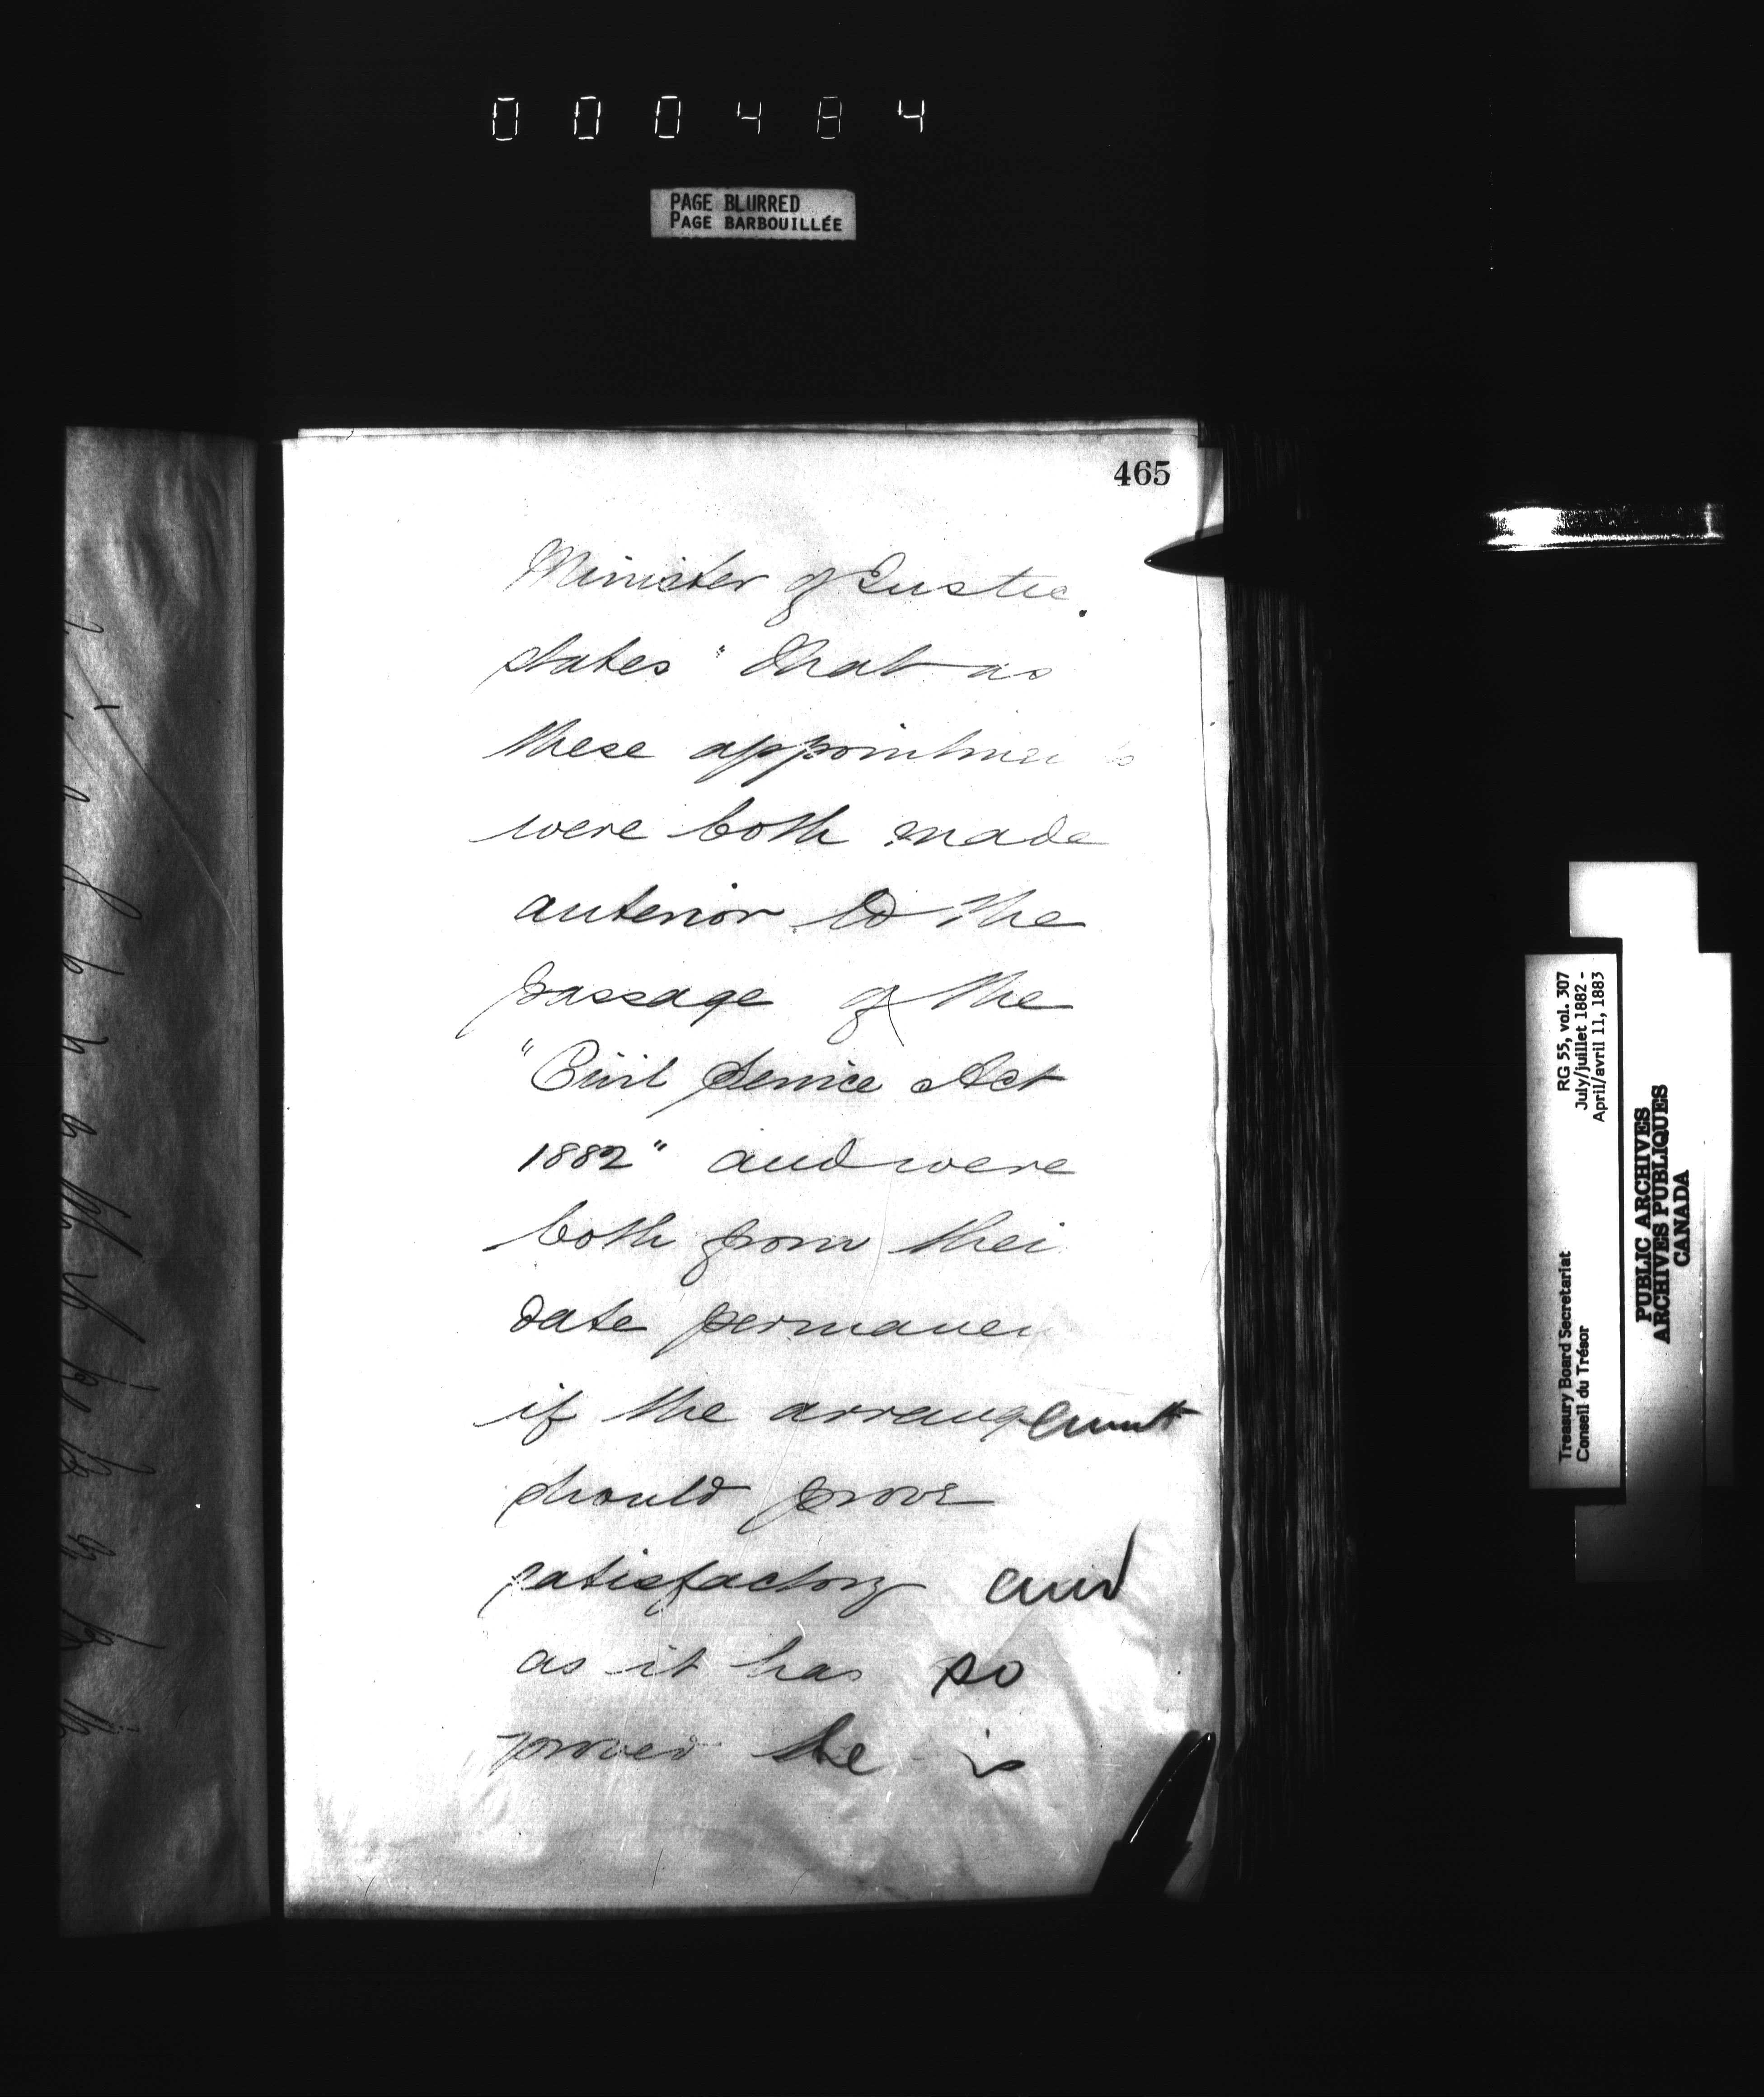 000484
PAGE BLURRED
PAGE BARBOUILLÉE
465
Minister of Justic
states "that as
these appointmen s
were both made
anterior to the
passage of the
"Civil Service Act
1882" and were
both from thei
date permanen
if the arrangement
should prove
satisfactory and
as it has so
proved he is
RG 55, vol. 307
July/juillet 1882 -
April/avril 11, 1883
Treasury Board Secretariat
Conseil du Trésor
PUBLIC ARCHIVES
ARCHIVES PUBLIQUES
CANADA